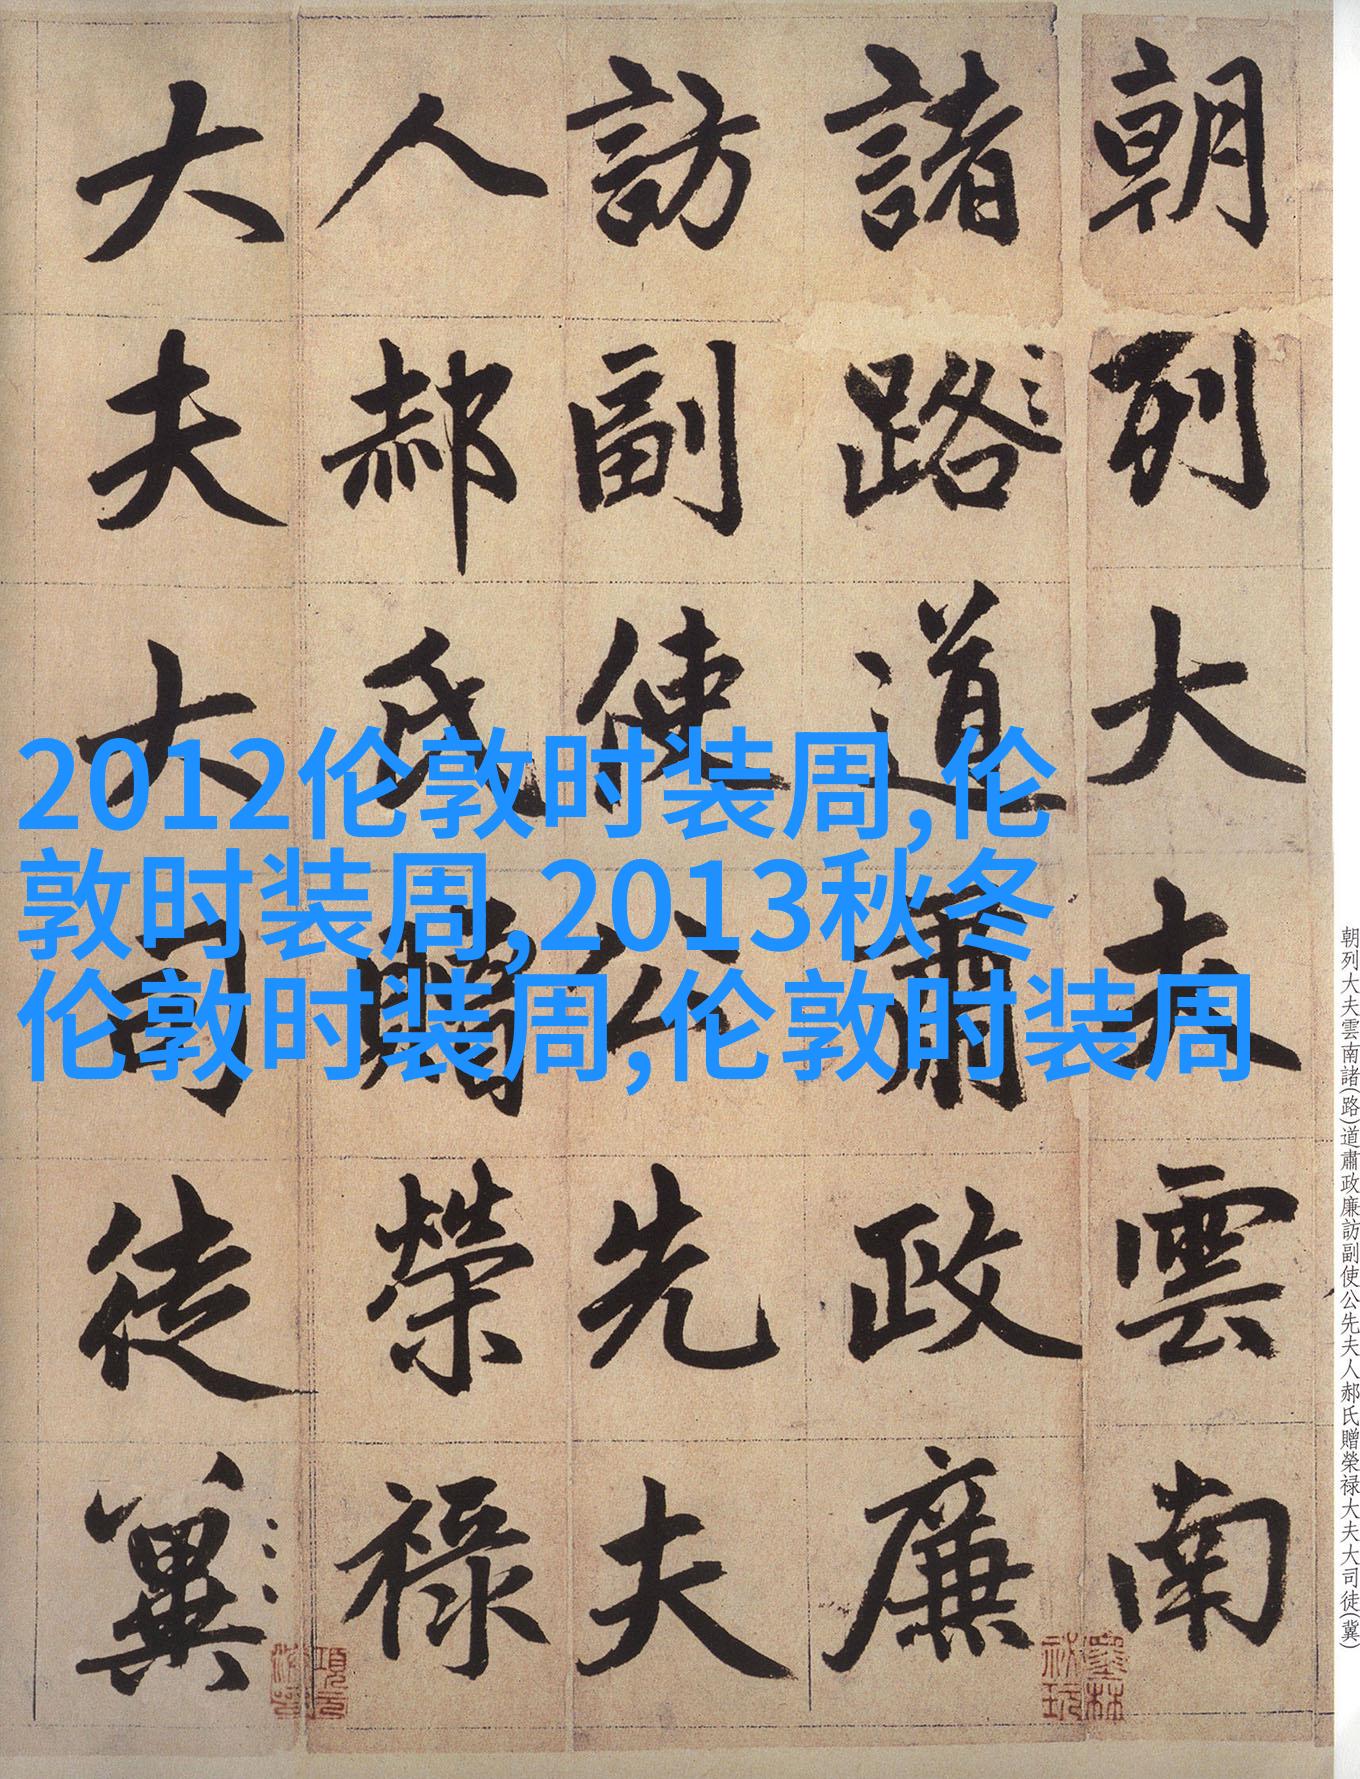 朝列大夫雲南
諸路道肅政廉
訪副使公先夫
人郝氏贈榮禄
大夫大司徒兾
2012伦敦时装周,伦
敦时装周,2013秋冬
伦敦时装周,伦敦时装周
朝列大夫雲南諸(路)道肅政廉訪副使公先夫人郝氏贈榮禄大夫大司徒(冀)